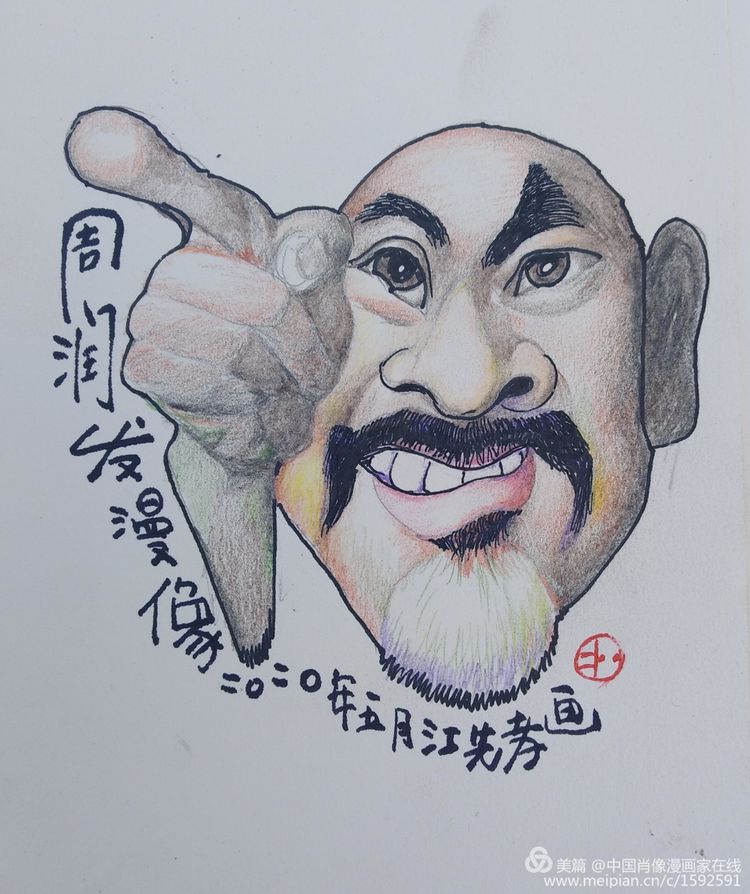 周润发漫像
二〇二〇年五月江先孝画
美篇 @中国肖像漫画家在线
www.meipian.cn/c/1592591